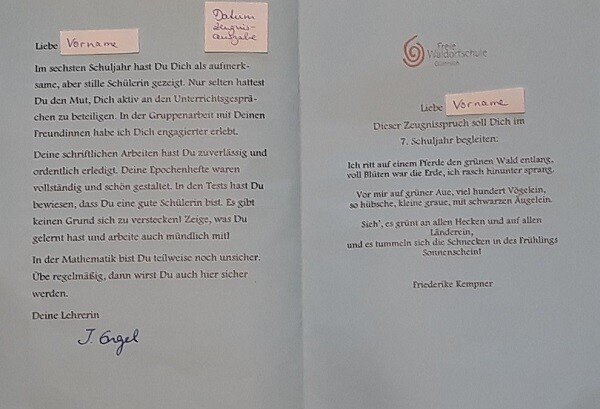 Liebe Vorname
Datum
Zeugnis-
ausgabe
Im sechsten Schuljahr hast Du Dich als aufmerk-
same, aber stille Schülerin gezeigt. Nur selten hattest
Du den Mut, Dich aktiv an den Unterrichtsgesprä-
chen zu beteiligen. In der Gruppenarbeit mit Deinen
Freundinnen habe ich Dich engagierter erlebt.
Deine schriftlichen Arbeiten hast Du zuverlässig und
ordentlich erledigt. Deine Epochenhefte waren
vollständig und schön gestaltet. In den Tests hast Du
bewiesen, dass Du eine gute Schülerin bist. Es gibt
keinen Grund sich zu verstecken! Zeige, was Du
gelernt hast und arbeite auch mündlich mit!
In der Mathematik bist Du teilweise noch unsicher.
Übe regelmäßig, dann wirst Du auch hier sicher
werden.
Deine Lehrerin
J. Engel
Freie
Waldorfschule
Liebe Vorname
Dieser Zeugnisspruch soll Dich im
7. Schuljahr begleiten:
Ich ritt auf einem Pferde den grünen Wald entlang,
voll Blüten war die Erde, ich rasch hinunter sprang.
Vor mir auf grüner Aue, viel hundert Vögelein,
so hübsche, kleine graue, mit schwarzen Äugelein.
Sieh', es grünt an allen Hecken und auf allen
Länderein,
und es tummeln sich die Schnecken in des Frühlings
Sonnenschein!
Friederike Kempner